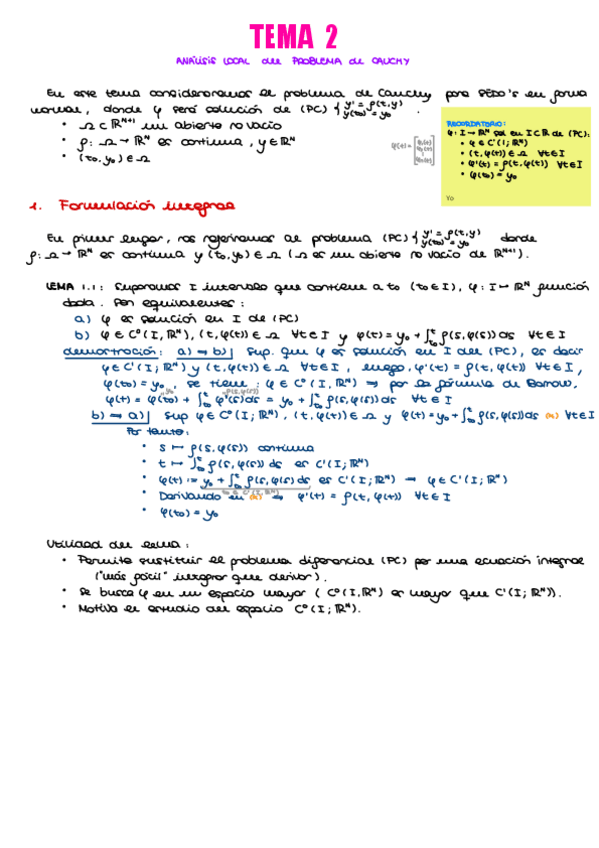 TEMA 2
ANÁLISIS LOCAL del PROBLEMA de CAUCHY
En este tema consideraremos el problema de Cauchy para SEDO's en forma
normal, donde φ será solución de (PC) { y' = f(t,y) y(t₀) = y₀ .
• Ω ⊂ ℝᴺ⁺¹ un abierto no vacío
• f: Ω → ℝᴺ es continua, y ∈ ℝᴺ
• (t₀, y₀) ∈ Ω
RECORDATORIO:
φ: I → ℝᴺ sol en I ⊂ ℝ de (PC):
• φ ∈ C¹(I; ℝᴺ)
• (t, φ(t)) ∈ Ω ∀t∈I
• φ'(t) = f(t, φ(t)) ∀t∈I
• φ(t₀) = y₀
Yo
1. Formulación integral
En primer lugar, nos referiremos al problema (PC) { y' = f(t,y) y(t₀) = y₀ donde
f: Ω → ℝᴺ es continua y (t₀, y₀) ∈ Ω (Ω es un abierto no vacío de ℝᴺ⁺¹).
LEMA 1.1: Suponemos I intervalo que contiene a t₀ (t₀ ∈ I), φ: I → ℝᴺ función
dada. Son equivalentes:
a) φ es solución en I de (PC)
b) φ ∈ C⁰(I, ℝᴺ), (t, φ(t)) ∈ Ω ∀t∈I y φ(t) = y₀ + ∫ₜ₀ᵗ f(s, φ(s)) ds ∀t∈I
demostración: a) ⇒ b) | Sup. que φ es solución en I del (PC), es decir
φ ∈ C¹(I; ℝᴺ) y (t, φ(t)) ∈ Ω ∀t∈I, luego, φ'(t) = f(t, φ(t)) ∀t∈I,
φ(t₀) = y₀, se tiene: φ ∈ C⁰(I, ℝᴺ) ⇒ por la fórmula de Barrow,
φ(t) = φ(t₀) + ∫ₜ₀ᵗ φ'(s) ds = y₀ + ∫ₜ₀ᵗ f(s, φ(s)) ds ∀t∈I
b) ⇒ a) | Sup φ ∈ C⁰(I; ℝᴺ), (t, φ(t)) ∈ Ω y φ(t) = y₀ + ∫ₜ₀ᵗ f(s, φ(s)) ds ∀t∈I
Por tanto:
• s ↦ f(s, φ(s)) continua
• t ↦ ∫ₜ₀ᵗ f(s, φ(s)) ds es C¹(I; ℝᴺ)
• φ(t) := y₀ + ∫ₜ₀ᵗ f(s, φ(s)) ds es C¹(I; ℝᴺ) ⇒ φ ∈ C¹(I; ℝᴺ)
• Derivando en ⇒ φ'(t) = f(t, φ(t)) ∀t∈I
• φ(t₀) = y₀
Utilidad del lema:
• Permite sustituir el problema diferencial (PC) por una ecuación integral
("más fácil" integrar que derivar).
• Se busca φ en un espacio mayor (C⁰(I, ℝᴺ) es mayor que C¹(I; ℝᴺ)).
• Motiva el estudio del espacio C⁰(I; ℝᴺ).